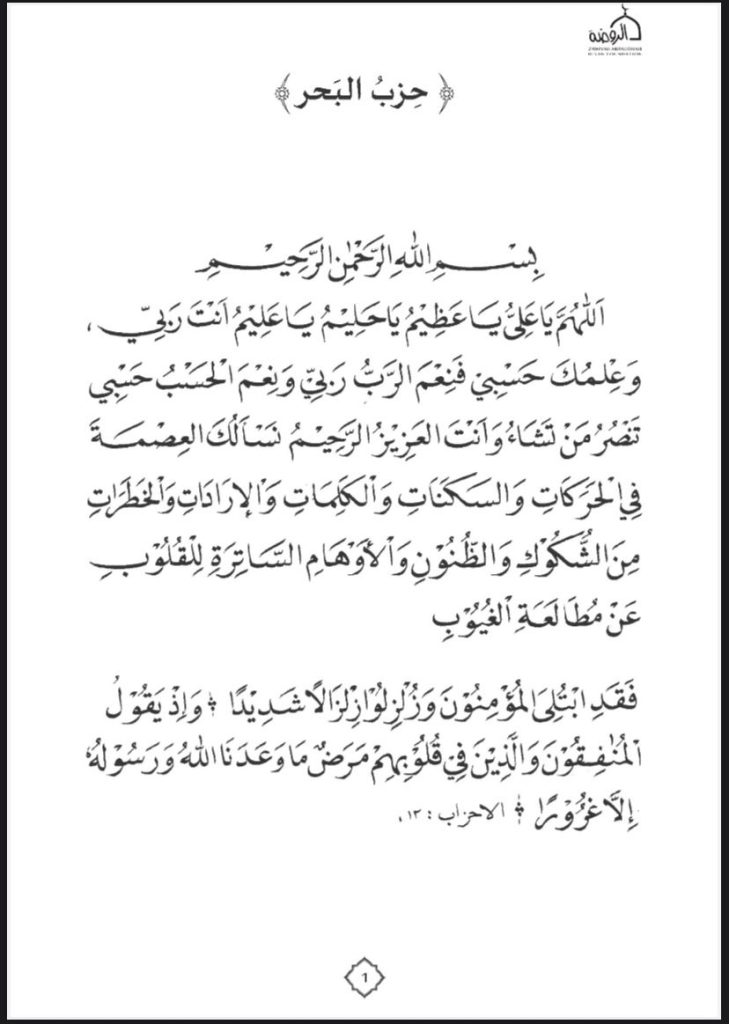 الروضة
﴿ حِزبُ البَحر ﴾
بِسْمِ اللهِ الرَّحْمٰنِ الرَّحِيْمِ
اَللّٰهُمَّ يَا عَلِيُّ يَا عَظِيْمُ يَا حَلِيْمُ يَا عَلِيْمُ اَنْتَ رَبِّيْ،
وَعِلمُكَ حَسْبِيْ فَنِعْمَ الرَّبُّ رَبِّيْ وَنِعْمَ الْحَسْبُ حَسْبِي
تَنْصُرُ مَنْ تَشَاءُ وَاَنْتَ العَزِيْزُ الرَّحِيْمُ نَسْاَلُكَ العِصْمَةَ
فِي الْحَرَكَاتِ وَالسَكَنَاتِ وَالْكَلِمَاتِ وَالْاِرَادَاتِ وَالْخَطَرَاتِ
مِنَ الشُّكُوْكِ وَالظُّنُوْنِ وَالْاَوْهَامِ السَّاتِرَةِ لِلْقُلُوْبِ
عَنْ مُطَالَعَةِ الْغُيُوْبِ
فَقَدِ ابْتُلِىَ الْمُؤْمِنُوْنَ وَزُلْزِلُوْا زِلْزَالًا شَدِيْدًا ۞ وَاِذْ يَقُوْلُ
الْمُنٰفِقُوْنَ وَالَّذِيْنَ فِيْ قُلُوْبِهِمْ مَرَضٌ مَا وَعَدَنَا اللهُ وَرَسُوْلُهُ
إِلَّا غُرُوْرًا ۞ الاحزاب : ١٣،
1